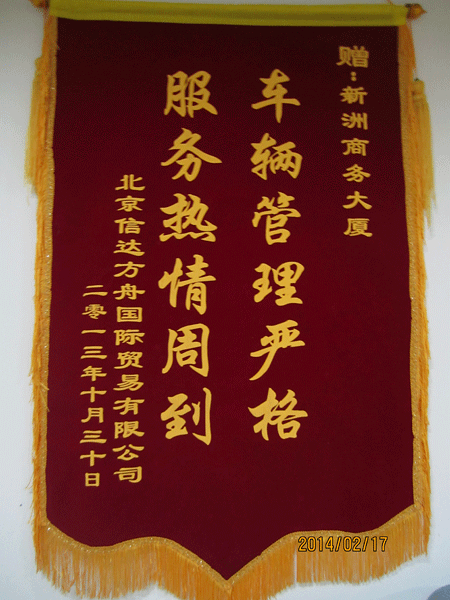 赠：新洲商务大厦
车辆管理严格
服务热情周到
北京信达方舟国际贸易有限公司
二零一三年十月三十日
2014/02/17